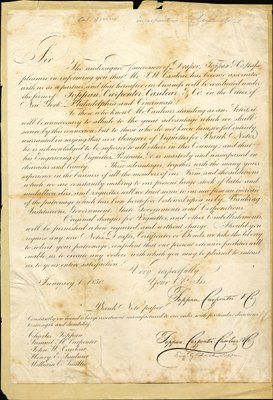 Sir
The undersigned successors of Draper, Toppan & Co. have
pleasure in informing you that Mr. J. W. Casilear has become associated
with us as a partner, and that henceforward our business will be conducted under
the firm of Toppan, Carpenter, Casilear & Co. in the Cities of
New York, Philadelphia and Cincinnati.
To those who know Mr. Casilear's standing as an Artist, it
will be unnecessary to allude to the great advantage which we shall
derive by this connexion, but to those who do not know him, we feel entirely
warranted in saying that as a designer of Vignettes for Bank Notes
he is acknowledged to be superior to all others in this Country, and that
his Engraving of Vignettes, Portraits, &c. is entirely unsurpassed in
character and execution.
These advantages, together with the many years
experience in the business of all the members of our Firm, and the additions
which we are constantly making to our present large stock of
will, we trust, insure to us not only a continuance
of the patronage which has been heretofore bestowed upon us by Banking
Institutions, Government, State Governments and Corporations.
Original designs for Vignettes, and other Embellishments
will be furnished when required, and without charge. Should you
require any new Notes, Drafts, Certificates or Bonds, we take the liberty
to solicit your patronage, confident that our present extensive facilities will
enable us to execute any orders with which you may be pleased to entrust
us, to your entire satisfaction.
Very respectfully
Your Ob. Sts.
January 1. 1850.
Toppan, Carpenter & Co.
Bank Note paper
Constantly on hand
to strength and durability.
Charles Toppan
Samuel H. Carpenter
John W. Casilear
Henry E. Saulnier
William C. Smillie
Toppan Carpenter Casilear & Co.